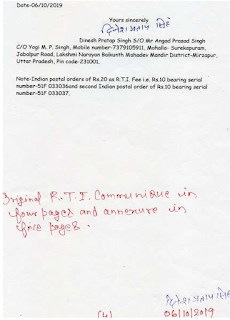 Date-06/10/2019
Yours sincerely
दिनेश प्रताप सिंह
Dinesh Pratap Singh S/O Mr Angad Prasad Singh
C/O Yogi M. P. Singh, Mobile number-7379105911, Mohalla- Surekapuram,
Jabalpur Road, Lakshmi Narayan Baikunth Mahadev Mandir District-Mirzapur,
Uttar Pradesh, Pin code-231001.
Note-Indian postal orders of Rs.20 as R.T.I. Fee i.e. Rs.10 bearing serial
number-51F 033036and second Indian postal order of Rs.10 bearing serial
number-51F 033037.
Original R.T.I. Communique in
four pages and annexure in
five pages.
दिनेश प्रताप सिंह
(4) 06/10/2019